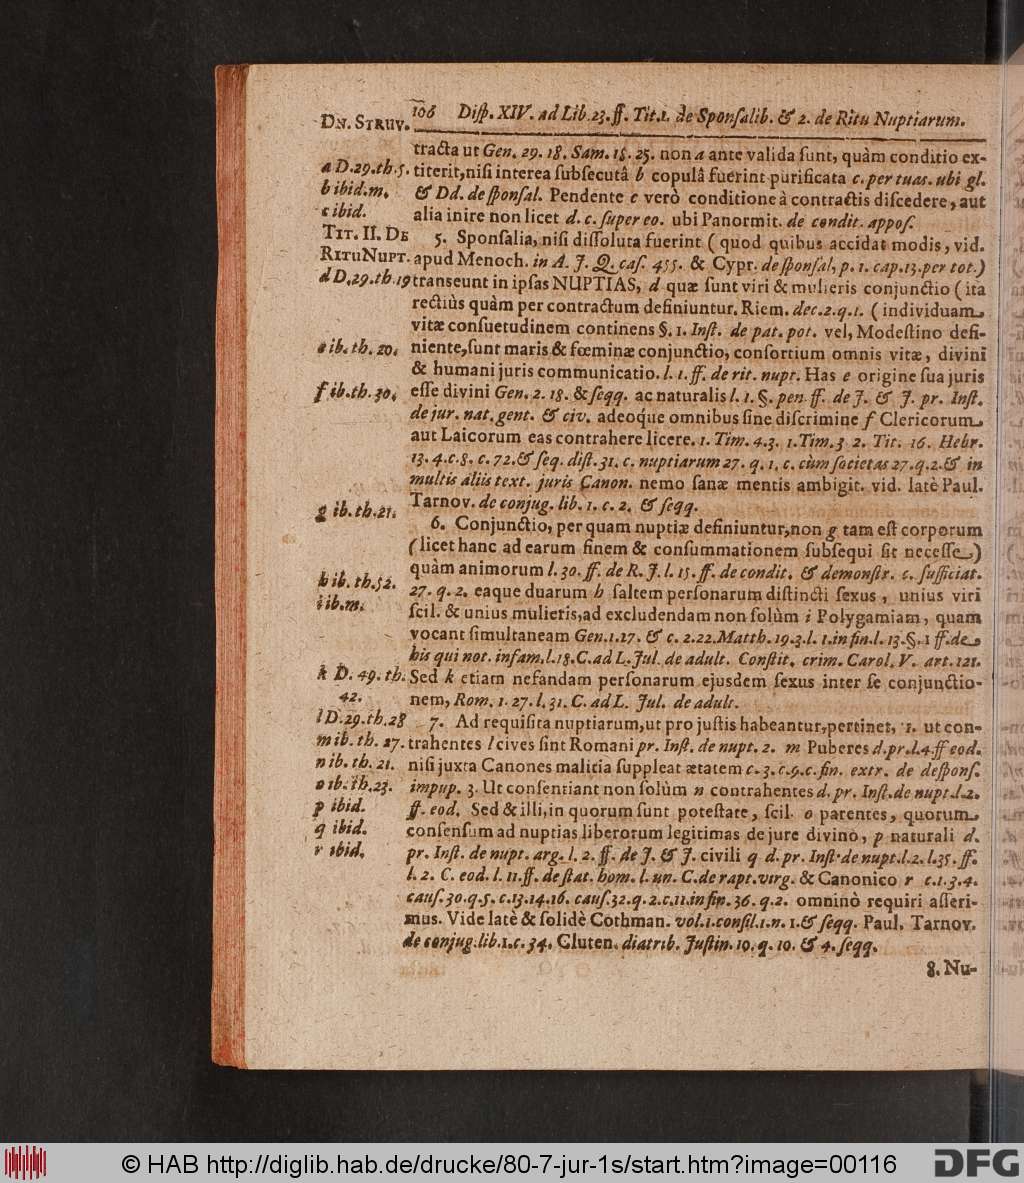 106 Diſp. XIV. ad Lib. 23. ff. Tit. 1. de Sponſalib. & 2. de Ritu Nuptiarum.
DN. STRUV.
a D. 29. th. 5.
b ibid. m.
c ibid.
TIT. II. DE
RITU NUPT.
d D. 29. th. 19
e ib. th. 20.
f ib. th. 30.
g ib. th. 21.
h ib. th. 52.
i ib. m.
k D. 49. th.
42.
l D. 29. th. 28
m ib. th. 27.
n ib. th. 21.
o ib. th. 23.
p ibid.
q ibid.
r ibid.
tracta ut Gen. 29. 18. Sam. 18. 25. non a ante valida ſunt, quàm conditio ex-
titerit, niſi interea ſubſecutâ b copulâ fuerint purificata c. per tuas. ubi gl.
& Dd. de ſponſal. Pendente c verò conditione à contractis diſcedere, aut
alia inire non licet d. c. ſuper eo. ubi Panormit. de condit. appoſ.
5. Sponſalia, niſi diſſoluta fuerint ( quod quibus accidat modis, vid.
apud Menoch. in A. J. Q. caſ. 455. & Cypr. de ſponſal, p. 1. cap. 13. per tot.)
tranſeunt in ipſas NUPTIAS, d quæ ſunt viri & mulieris conjunctio ( ita
rectiùs quàm per contractum definiuntur. Riem. dec. 2. q. 1. ( individuam
vitæ conſuetudinem continens §. 1. Inſt. de pat. pot. vel, Modeſtino defi-
niente, ſunt maris & fœminæ conjunctio, conſortium omnis vitæ, divini
& humani juris communicatio. l. 1. ff. de rit. nupt. Has e origine ſua juris
eſſe divini Gen. 2. 18. & ſeqq. ac naturalis l. 1. §. pen. ff. de J. & J. pr. Inſt.
de jur. nat. gent. & civ. adeoque omnibus ſine diſcrimine f Clericorum
aut Laicorum eas contrahere licere. 1. Tim. 4. 3. 1. Tim. 3 2. Tit. 16. Hebr.
13. 4. c. 8. c. 72. & ſeq. diſt. 31. c. nuptiarum 27. q. 1. c. cùm ſocietas 27. q. 2. & in
multis aliis text. juris Canon. nemo ſanæ mentis ambigit. vid. latè Paul.
Tarnov. de conjug. lib. 1. c. 2. & ſeqq.
6. Conjunctio, per quam nuptiæ definiuntur, non g tam eſt corporum
( licet hanc ad earum finem & conſummationem ſubſequi ſit neceſſe )
quàm animorum l. 30. ff. de R. J. l. 15. ff. de condit. & demonſtr. c. ſufficiat.
27. q. 2. eaque duarum h ſaltem perſonarum diſtincti ſexus, unius viri
ſcil. & unius mulieris, ad excludendam non ſolùm i Polygamiam, quam
vocant ſimultaneam Gen. 1. 27. & c. 2. 22. Matth. 19. 3. l. 1. in fin. l. 13. §. 1 ff. de
his qui not. infam. l. 18. C. ad L. Jul. de adult. Conſtit. crim. Carol. V. art. 121.
Sed k etiam nefandam perſonarum ejusdem ſexus inter ſe conjunctio-
nem, Rom. 1. 27. l. 31. C. ad L. Jul. de adult.
7. Ad requiſita nuptiarum, ut pro juſtis habeantur, pertinet, 1. ut con-
trahentes l cives ſint Romani pr. Inſt. de nupt. 2. m Puberes d. pr. l. 4. ff eod.
niſi juxta Canones malitia ſuppleat ætatem c. 3. c. 9. c. fin. extr. de deſponſ.
impup. 3. Ut conſentiant non ſolùm n contrahentes d. pr. Inſt. de nupt. l. 2.
ff. eod. Sed & illi, in quorum ſunt poteſtate, ſcil. o parentes, quorum
conſenſum ad nuptias liberorum legitimas de jure divino, p naturali d.
pr. Inſt. de nupt. arg. l. 2. ff. de J. & J. civili q d. pr. Inſt. de nupt. l. 2. l. 35. ff.
l. 2. C. eod. l. 11. ff. de ſtat. hom. l. un. C. de rapt. virg. & Canonico r c. 1. 3. 4.
cauſ. 30. q. 5. c. 13. 14. 16. cauſ. 32. q. 2. c. 11. in fin. 36. q. 2. omninò requiri aſſeri-
mus. Vide latè & ſolidè Cothman. vol. 1. conſil. 1. n. 1. & ſeqq. Paul. Tarnov.
de conjug. lib. 1. c. 34. Gluten. diatrib. Juſtin. 19. q. 10. & 4. ſeqq.
8. Nu-
© HAB http://diglib.hab.de/drucke/80-7-jur-1s/start.htm?image=00116
DFG